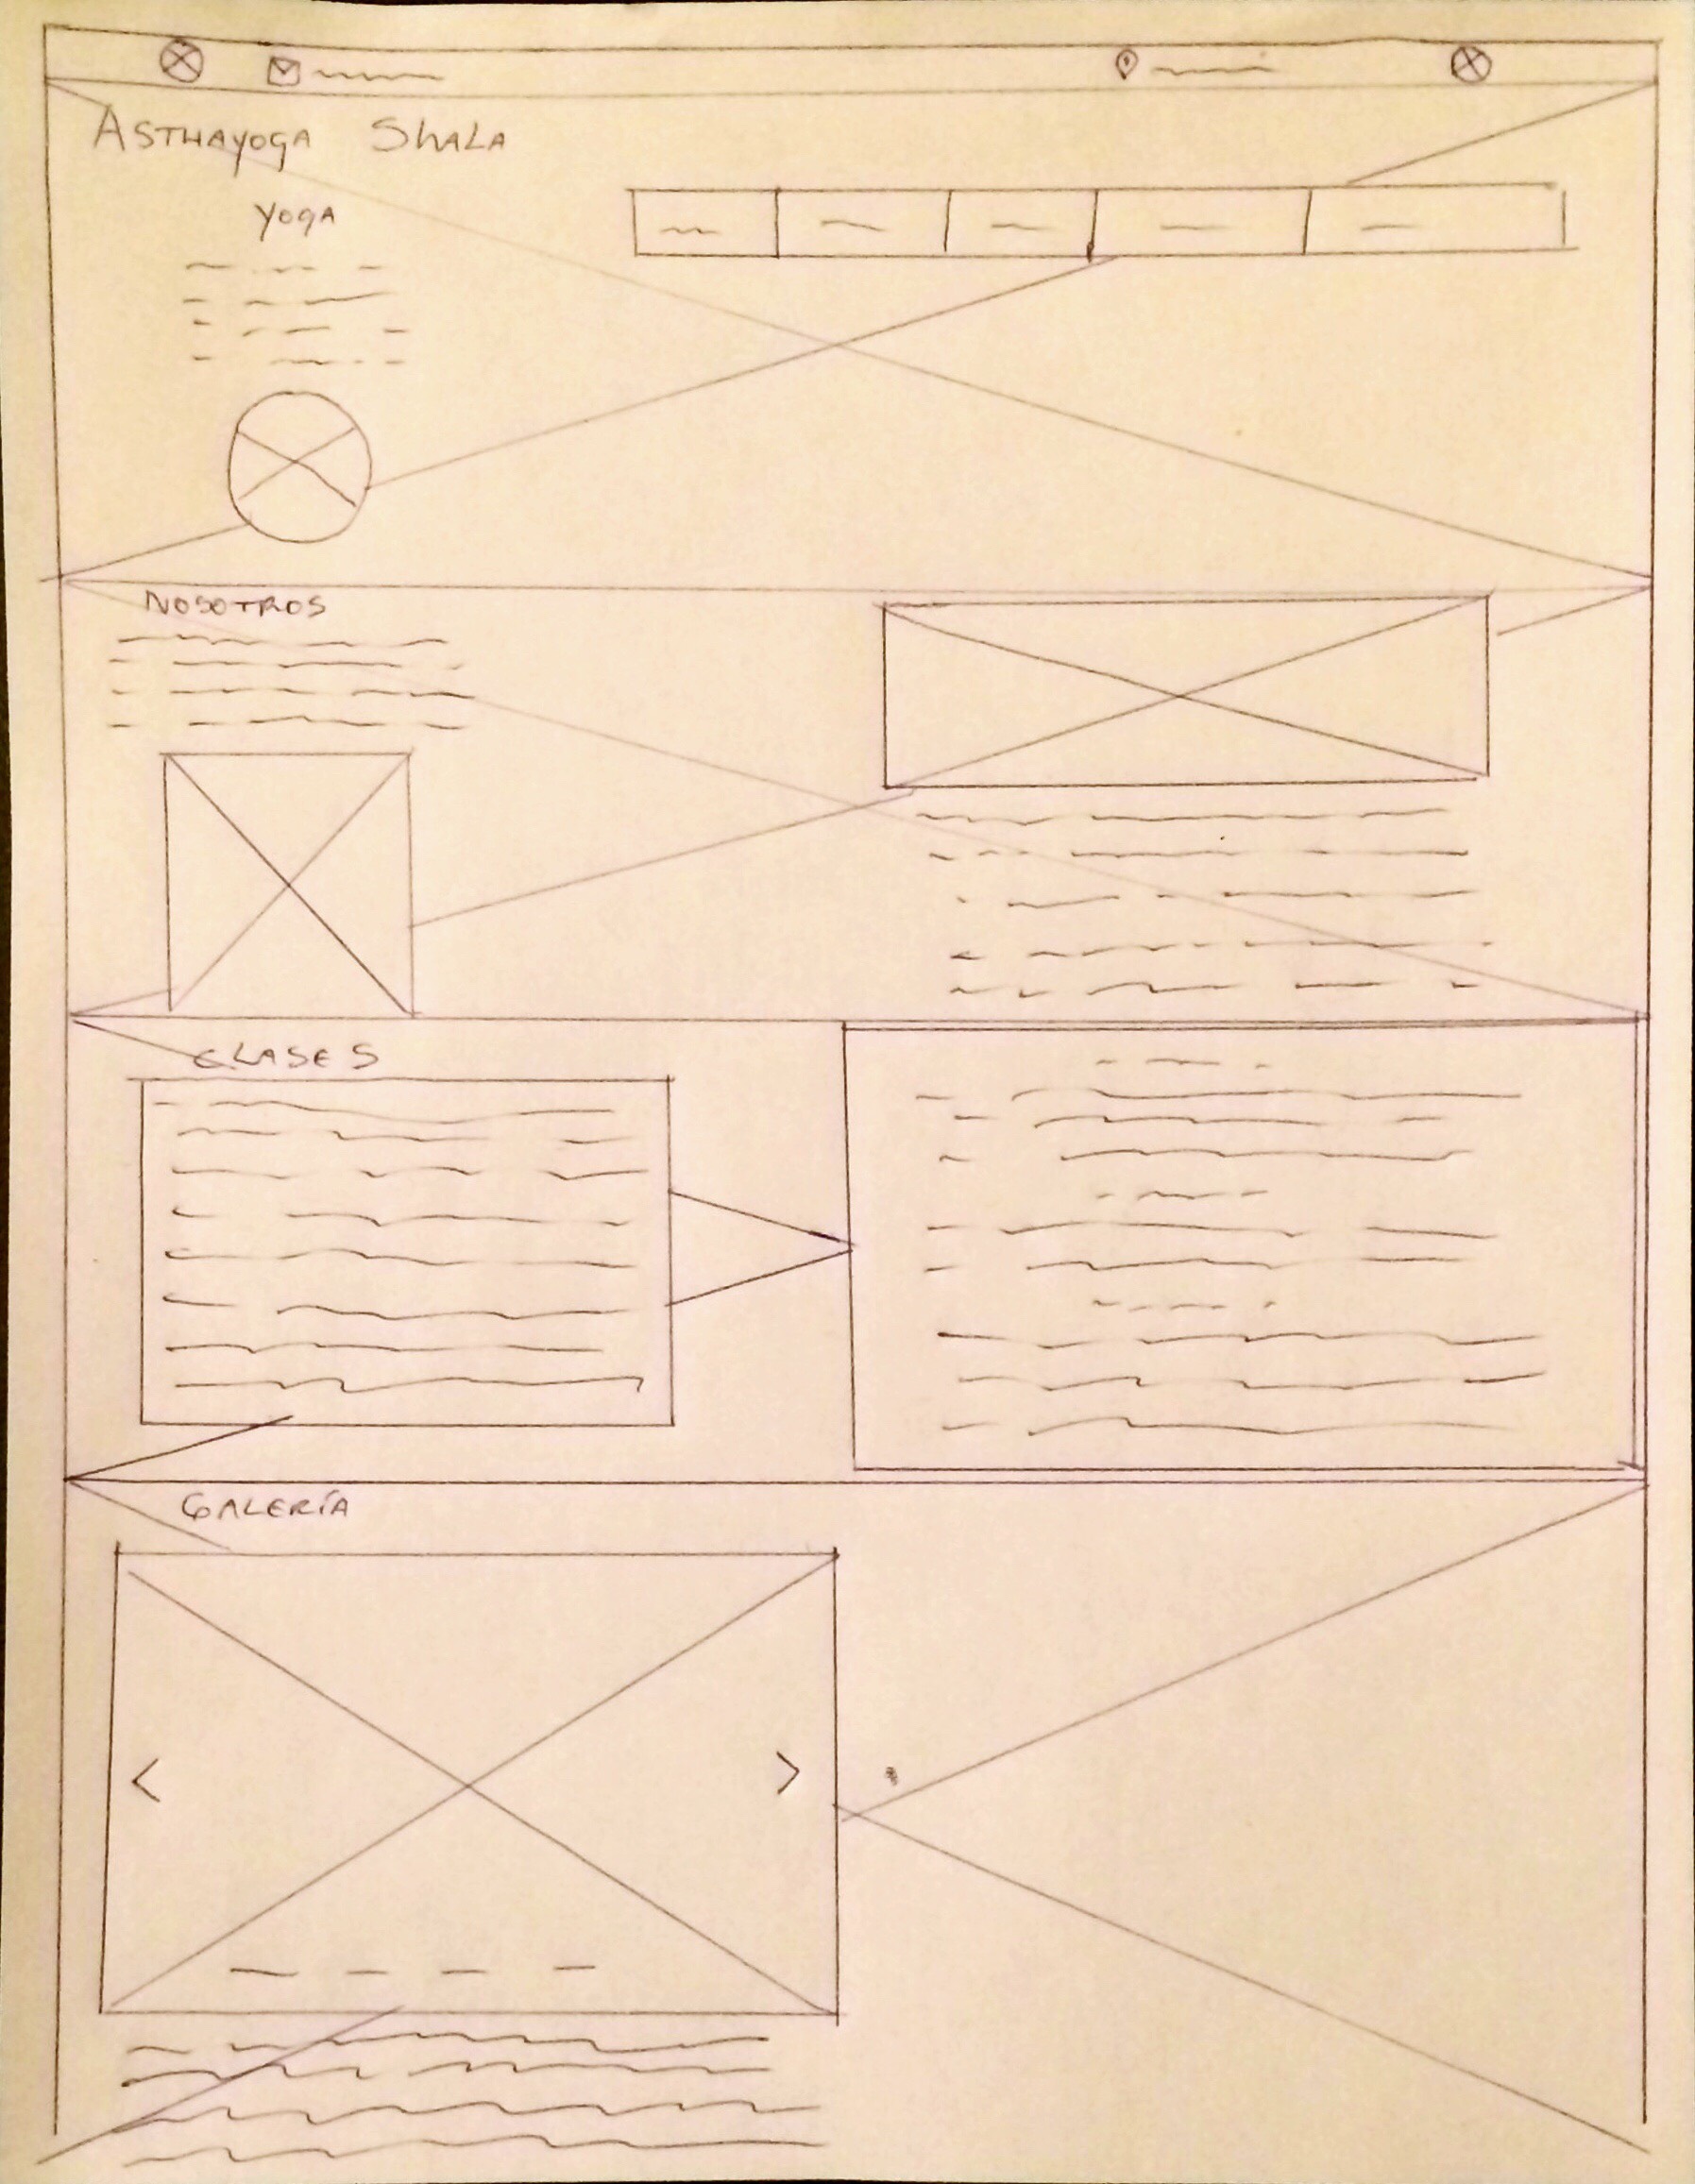 ASTHAYOGA ShALA
YOGA
NOSOTROS
CLASES
GALERÍA